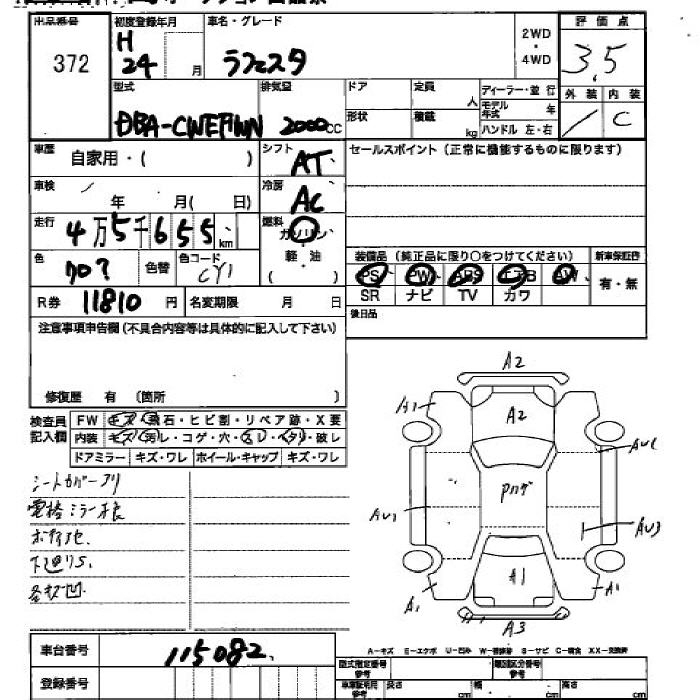 出品番号 初度登録年月 車名・グレード 2WD・4WD 評価点
372 H 24 月 ラフェスタ 3.5
型式 排気量 ドア 定員 人 ディーラー・並行 外装 内装
DBA-CWEFWN 2000cc 形状 積載 kg モデル年式 年 ハンドル 左・右 / C
車歴 自家用・( ) シフト AT セールスポイント(正常に機能するものに限ります)
車検 / 年 月( 日) 冷房 AC
走行 4万5千655km 燃料 ガソリン・軽・油・( )
色 クロ? 色替 色コード CY1 装備品(純正品に限り○をつけてください) 新車保証書
PS PW ABS エアB AW 有・無
R券 11810 円 名変期限 月 日 SR ナビ TV カワ
注意事項申告欄(不具合内容等は具体的に記入して下さい) 後日品
修復歴 有 (箇所 )
検査員記入欄 FW キズ・飛石・ヒビ割・リペア跡・X要
内装 キズ・汚レ・コゲ・穴・スレ・ヘタリ・破レ
ドアミラー キズ・ワレ ホイール・キャップ キズ・ワレ
シートカバーアリ
電格ミラー不良
ボディ
下廻りS
各部凹
A2
A1 A2
AU1 Pハゲ AU3
A1 A1 A1
A3
A-キズ E-エクボ U-凹ミ S-サビ C-腐食 XX-交換済
車台番号 115082
登録番号 型式指定番号 参考 類別区分番号 参考
長さ cm 幅 cm 高さ cm